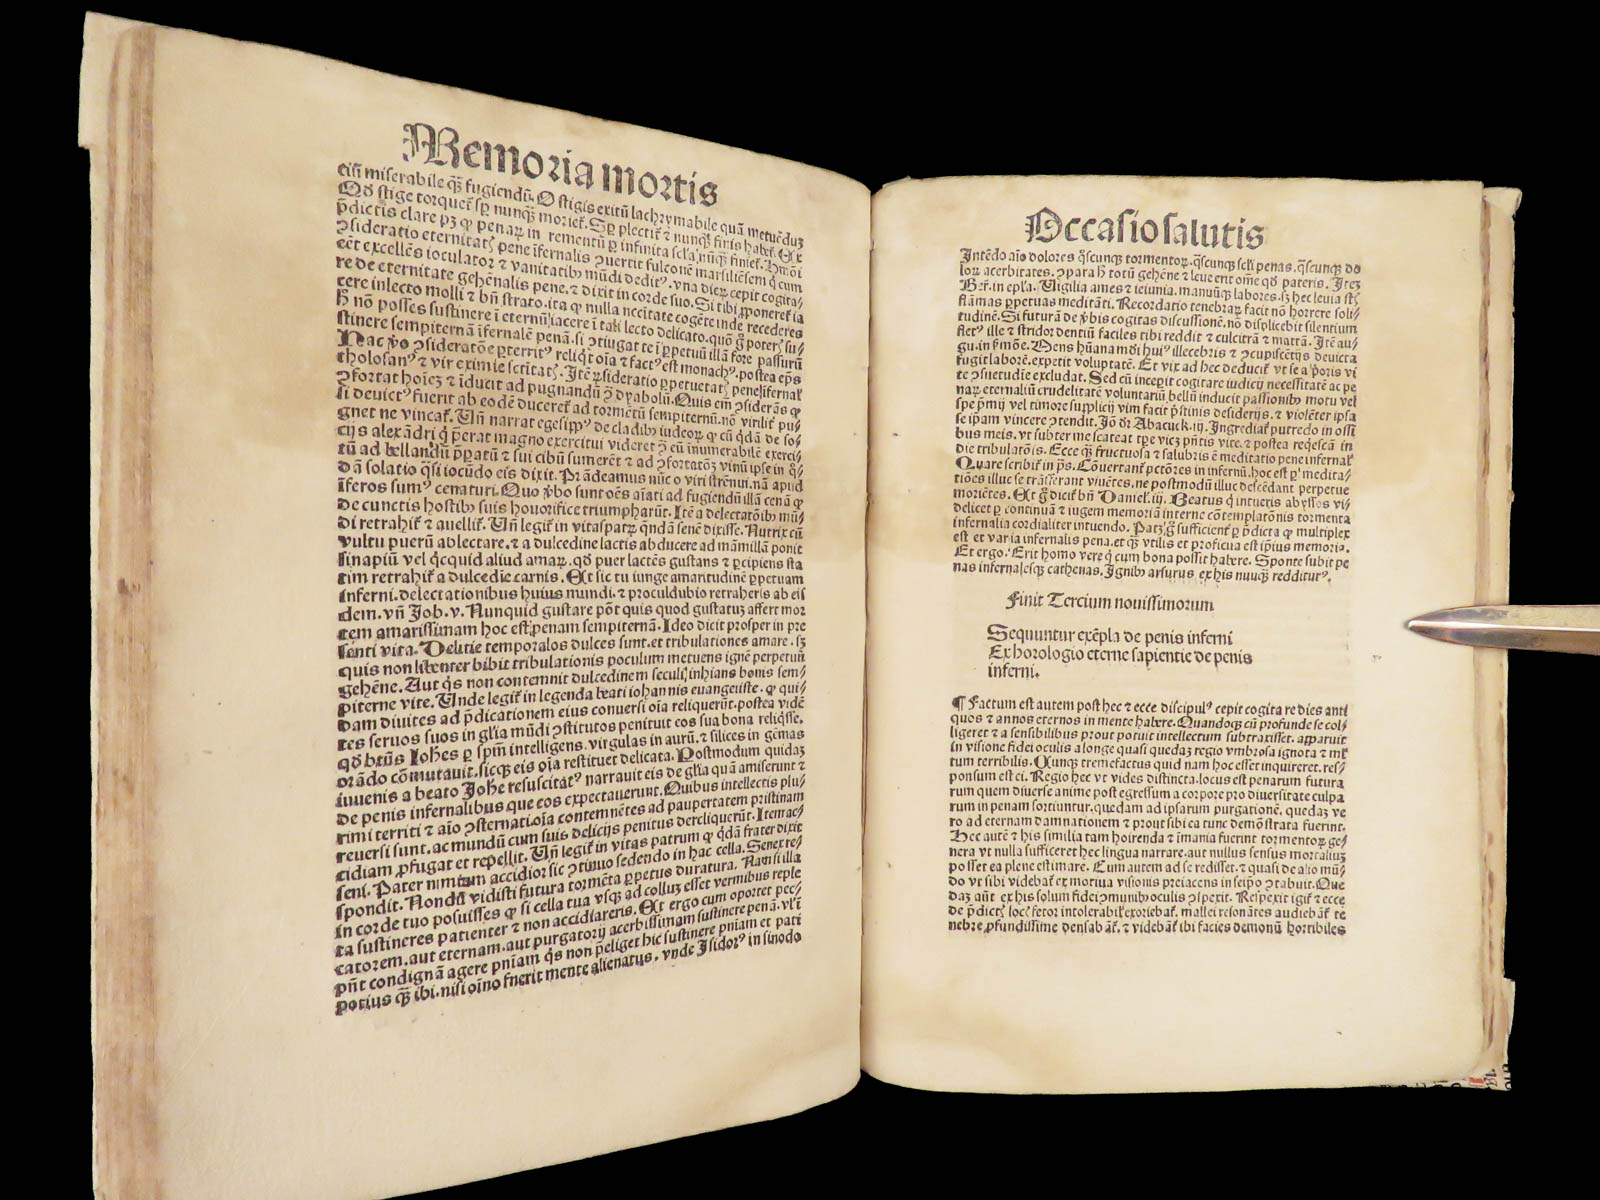 Memoria mortis
eiñ miserabile q̃ꝫ fugiendũ. O stigis exitũ lachrymabile quã metuẽduꝫ
Qđ stige torqueť sꝑ nunq̃ꝫ morieť. Sꝑ plectiť ⁊ nunq̃ꝫ finis habeť. Ex
p̃dictis clare pꝫ ꝙ penaꝝ in
ꝯsideratio eternitatꝭ pene ĩfernalis ꝯuertit fulconẽ marsiliẽsem q̃ cum
eẽt excellẽs ioculator ⁊ vanitatibꝰ mũdi deditꝰ. vna dieꝝ cepit cogita-
re de eternitate gehẽnalis pene. ⁊ dixit in corde suo. Si tibi ꝓponereť ia
cere inlecto molli ⁊ bñ strato. ita ꝙ nulla nccitate cogẽte inde recederes
h̃ nõ posses sustinere ĩ eternũ iacere ĩ tali lecto delicato. quõ g̊ poterꝭ su-
stinere sempiternã ĩfernalẽ penã. si ꝯtiugat te ĩ ꝑpetuũ illã fore passurũ
Hac ꝟo ꝯsideratõe ꝑterritꝰ reliq̃t oĩa ⁊ factꝰ est monachꝰ. postea ep̃s
tholosanꝰ ⁊ vir eximie sctitatꝭ. Itẽ ꝯsideratio ꝑpetuetatꝭ pene ĩfernał
ꝯfortat hoĩeꝫ ⁊ ĩducit ad pugnandũ ꝯ̃ dyabolũ. Quis eñ ꝯsiderãs ꝙ
si deuictꝰ fuerit ab eodẽ duceret̃ ad tormẽtũ sempiternũ. nõ viriliť pu-
gnet ne vincať. Uñ narrat egesippꝰ de cladibꝰ iudeoꝝ ꝙ cũ q̃dã de so-
cijs alexãdri q̃ p̃erat magno exercitui videret ꝯ̃ eũ ĩnumerabilẽ exerci-
tũ ad bellandũ ꝑatũ ⁊ sui cibũ sumerẽt ⁊ ad ꝯfortatõꝫ vinũ ipse in q̃-
dã solatio q̃si iocũdo eis dixit. Prãdeamus nũc o viri strẽnui. nã apud
ĩferos sumꝰ cenaturi. Quo ꝟbo sunt oẽs aĩati ad fugiendũ illã cenã ꝙ
de cunctis hostibꝰ suis honorifice triumpharũt. Itẽ a delectatõibꝰ mũ-
di retrahiť ⁊ auelliť. Uñ legiť in vitaspatꝝ q̃ndã senẽ dixisse. Nutrix cũ
vultu pueru̅ ablectare. ⁊ a dulcedine lactis abducere ad mãmillã ponit
sinapiũ vel q̃cquid aliud amaꝝ. qđ puer lactẽs gustans ⁊ ꝑcipiens sta
tim retrahiť a dulcedĩe carnis. Et sic tu iunge amaritudinẽ ꝑpetuam
inferni. delectationibus huius mundi. ⁊ proculdubio retraheris ab eis
dem. vñ Job. v. Nunquid gustare põt quis quod gustatuꝫ affert mor
tem amarissimam hoc est penam sempiternã. Ideo dicit prosper in pre
senti vita. Delitie temporalos dulces sunt. et tribulationes amare. sꝫ
quis non libenter bibit tribulationis poculum metuens ignẽ perpetuũ
gehẽne. Aut q̃s non contemnit dulcedinem seculi inhians bonis sem-
piterne vite. Unde legiť in legenda beati iohannis euangeliste. ꝙ qui-
dam diuites ad p̃dicationem eius conuersi oĩa reliquerũt. postea vidẽ
tes seruos suos in glĩa mũdi ꝯstitutos penituit eos sua bona reliq̃sse.
qđ btũs Johẽs ꝑ spm̃ intelligens. virgulas in aurũ. ⁊ silices in gẽmas
orãdo cõmutauit. sicqꝫ eis oĩa restituet delicata. Postmodum quidaꝫ
iuuenis a beato Johẽ resuscitatꝰ narrauit eis de glĩa quã amiserunt ⁊
de penis infernalibus que eos expectauerunt. Quibus intellectis plu-
rimi territi ⁊ aĩo ꝯsternati. oĩa contemnẽtes ad paupertatem pristinam
reuersi sunt. ac mundũ cum suis delicijs penitus dereliquerũt. Item ac-
cidiam ꝓfugat et repellit. Uñ legiť in vitas patrum ꝙ q̃dã frater dixit
seni. Pater nimium accidior sic ꝯtinuo sedendo in hac cella. Senex re-
spondit. Nondũ vidisti futura tormẽta ꝑpetus duratura. Nam si illa
in corde tuo posuisses ꝙ si cella tua vsqꝫ ad colluꝫ esset vermibus reple
ta sustineres patienter ⁊ non accidiareris. Et ergo cum oportet pec-
catorem. aut eternam. aut purgatorij acerbissimam sustinere penã. vľi
pñt condignã agere pniam q̃s non p̃eliget hic sustinere pniam et pati
potius q̃ꝫ ibi. nisi oĩno fuerit mente alienatus. vnde Isidorꝰ in sinodo
Occasio salutis
Intẽdo aĩo dolores q̃scunqꝫ tormentoꝝ. q̃scunqꝫ scľi penas. q̃scunqꝫ do
loꝝ acerbitates. ꝯpara h̃ totũ gehẽne ⁊ leue erit om̃e qđ pateris. Iteꝫ
Bř. in epľa. Uigilia ames ⁊ ieiunia. manuũqꝫ labores. sꝫ hec leuia stꝭ
flãmas ꝑpetuas meditãti. Recordatio tenebraꝝ facit nõ horrere soli-
tudinẽ. Si futurã de ꝟbis cogitas discussionẽ. nõ displicebit silentium
fletꝰ ille ⁊ stridor dentiũ faciles tibi reddit ⁊ culcitrã ⁊ mattã. Itẽ au-
gu. in ꝑmõe. Mens hũana mũdi huiꝰ illecebris ⁊ ꝯcupiscẽtijs deuicta
fugit laborẽ. expetit voluptatẽ. Et vix ad hec deduciť vt se a p̃oris vi
te ꝯsuetudie excludat. Sed cũ inceperit cogitare iudicij necessitatẽ ac pe
naꝝ eternaliũ crudelitatẽ voluntariũ bellũ inducit passionibꝰ motu vel
spe p̃mij vel timore supplicij vim facit p̃stinis desiderijs. ⁊ violẽter ipsa
se ip̃am vincere ꝯtendit. Iõ dř Abacuck. iij. Ingrediať putredo in ossi
bus meis. vt subter me scateat tꝑe vicꝫ p̃ntis vite. ⁊ postea reqescã in
die tribulatõis. Ecce q̃ꝫ fructuosa ⁊ salubris ẽ meditatio pene infernał
Quare scribiť in p̃s. Cõuertanť pctõres in infernũ. hoc est ꝑ medita-
tiões illuc se trãsferant viuẽtes. ne postmodũ illuc descẽdant perpetue
moriẽtes. Et g̊ diciť bñ Daniel. iij. Beatus q̃ intueris abyssos vi-
delicet ꝑ continuã ⁊ iugem memoriã interne cõtemplatõnis tormenta
infernalia cordialiter intuendo. Patꝫ g̊ sufficienť ꝑ p̃dicta ꝙ multiplex
est et varia infernalis pena. et q̃ꝫ vtilis et proficua est ip̃ius memoria.
Et ergo. Erit homo vere q̃ cum bona possit habere. Sponte subit pe
nas infernalesqꝫ cathenas. Ignibꝰ arsurus ex his nuuq̃ꝫ rediturꝰ.
Finit Tercium nouissimorum
Sequuntur exẽpla de penis inferni
Ex horologio eterne sapientie de penis
inferni.
¶ Factum est autem post hec ⁊ ecce discipulꝰ cepit cogitare dies anti
quos ⁊ annos eternos in mente habere. Quandoqꝫ cũ profunde se col-
ligeret ⁊ a sensibilibus prout potuit intellectum subtraxisset. apparuit
in visione fidei oculis a longe quasi quedaꝫ regio vmbrosa ignota ⁊ mľ
tum terribilis. Cunqꝫ tremefactus quid nam hoc esset inquireret. res-
ponsum est ei. Regio hec vt vides distincta. locus est penarum futura
rum quem diuerse anime post egressum a corpore pro diuersitate culpa
rum in penam sortiuntur. quedam ad ipsarum purgationẽ. quedaꝫ ve
ro ad eternam damnationem ⁊ prout sibi ea tunc demõstrata fuerint.
Hec autẽ ⁊ his similia tam horrenda ⁊ ĩmania fuerint tormentoꝝ ge-
nera vt nulla sufficeret hec lingua narrare. aut nullus sensus mortaliuꝫ
posset ea plene estimare. Cum autem ad se redisset. ⁊ quasi de alio mũ-
do vt sibi videbať ex motiua visionis preiacens in seip̃o ꝯtabuit. Que
daꝫ aũt ex his solum fidei ꝯmunibꝰ oculis ꝯspexit. Respexit igiť ⁊ ecce
de p̃dictꝭ locꝭ fetor intolerabił exoriebať. mallei resonãtes audiebãť te
nebre ꝓfundissime densabãť. ⁊ videbãť ibi facies demonũ horribiles